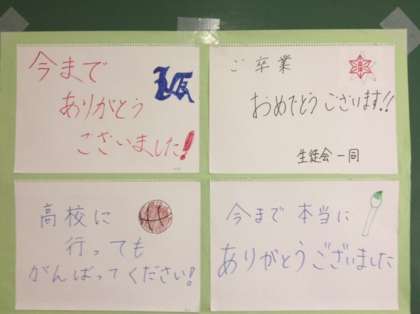 今まで
ありがとう
ございました!
ご卒業
おめでとうございます!!
生徒会一同
高校に
行っても
がんばってください!
今まで本当に
ありがとうございました